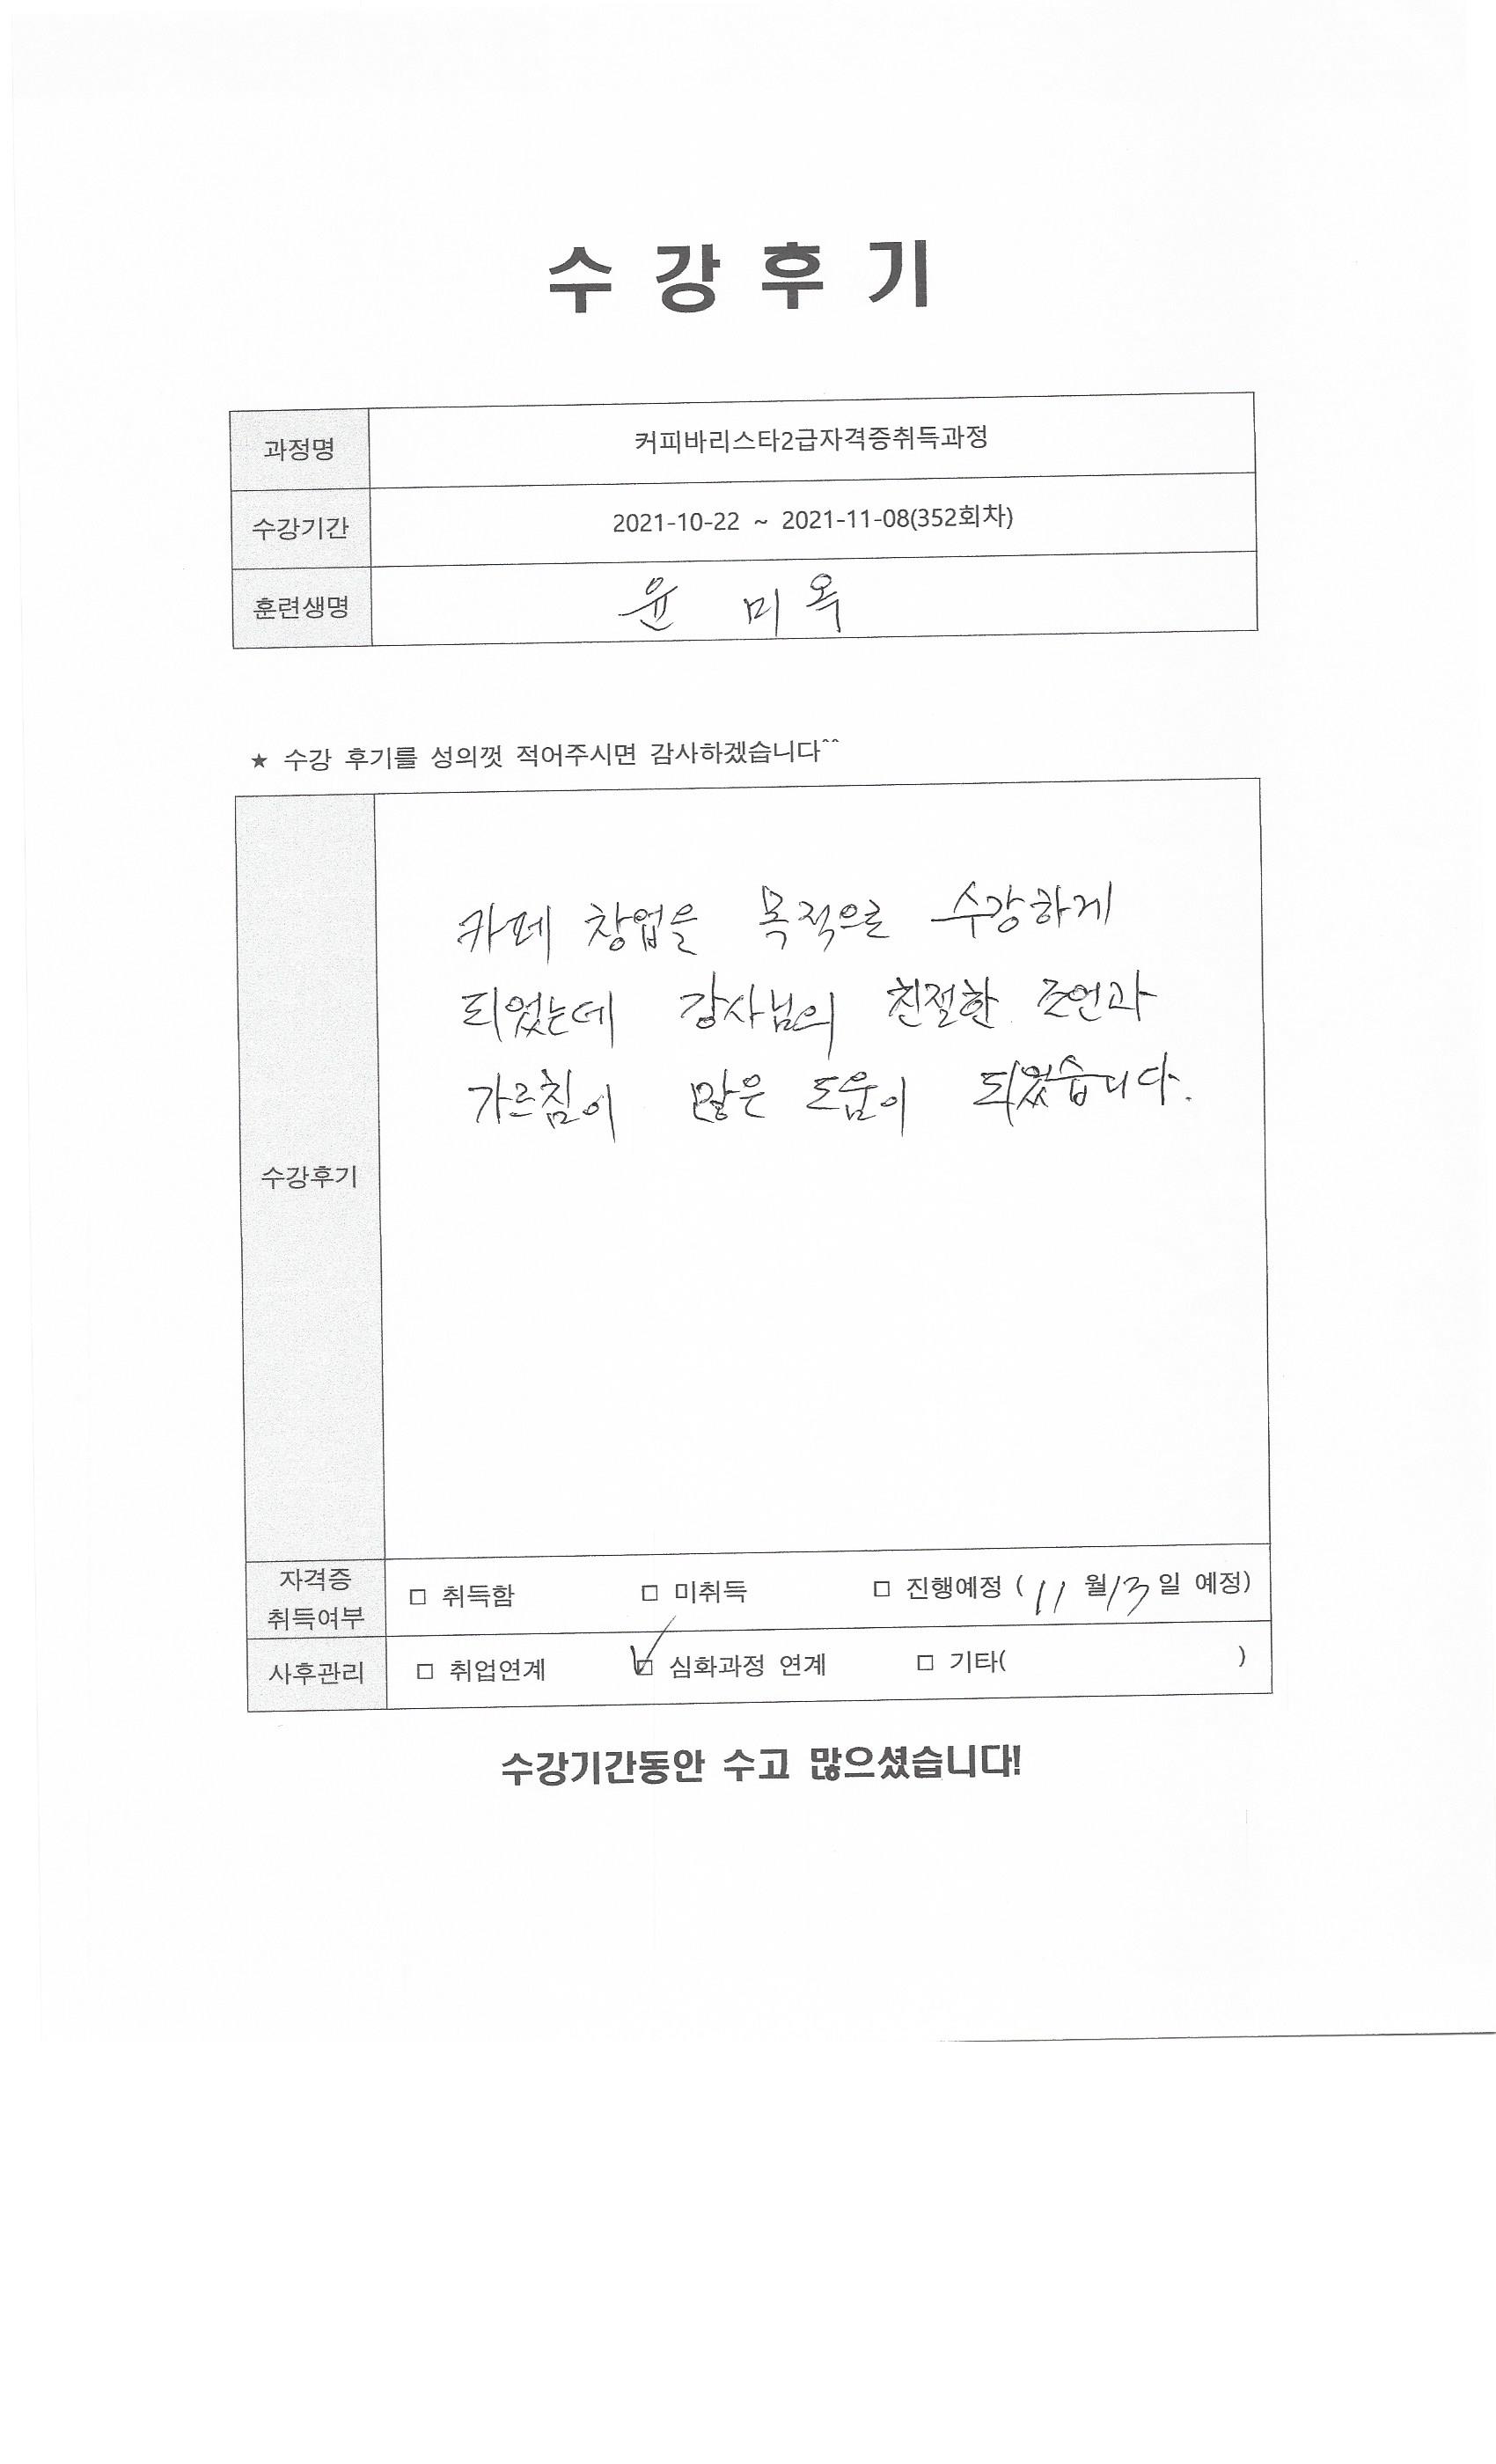 수 강 후 기
과정명 커피바리스타2급자격증취득과정
수강기간 2021-10-22 ~ 2021-11-08(352회차)
훈련생명 윤 미 옥
★ 수강 후기를 성의껏 적어주시면 감사하겠습니다^^
카페 창업을 목적으로 수강하게
되었는데 강사님의 친절한 조언과
가르침이 많은 도움이 되었습니다.
수강후기
자격증
취득여부
□ 취득함 □ 미취득 □ 진행예정 ( 11 월 13 일 예정)
사후관리 □ 취업연계 ☑ 심화과정 연계 □ 기타( )
수강기간동안 수고 많으셨습니다!